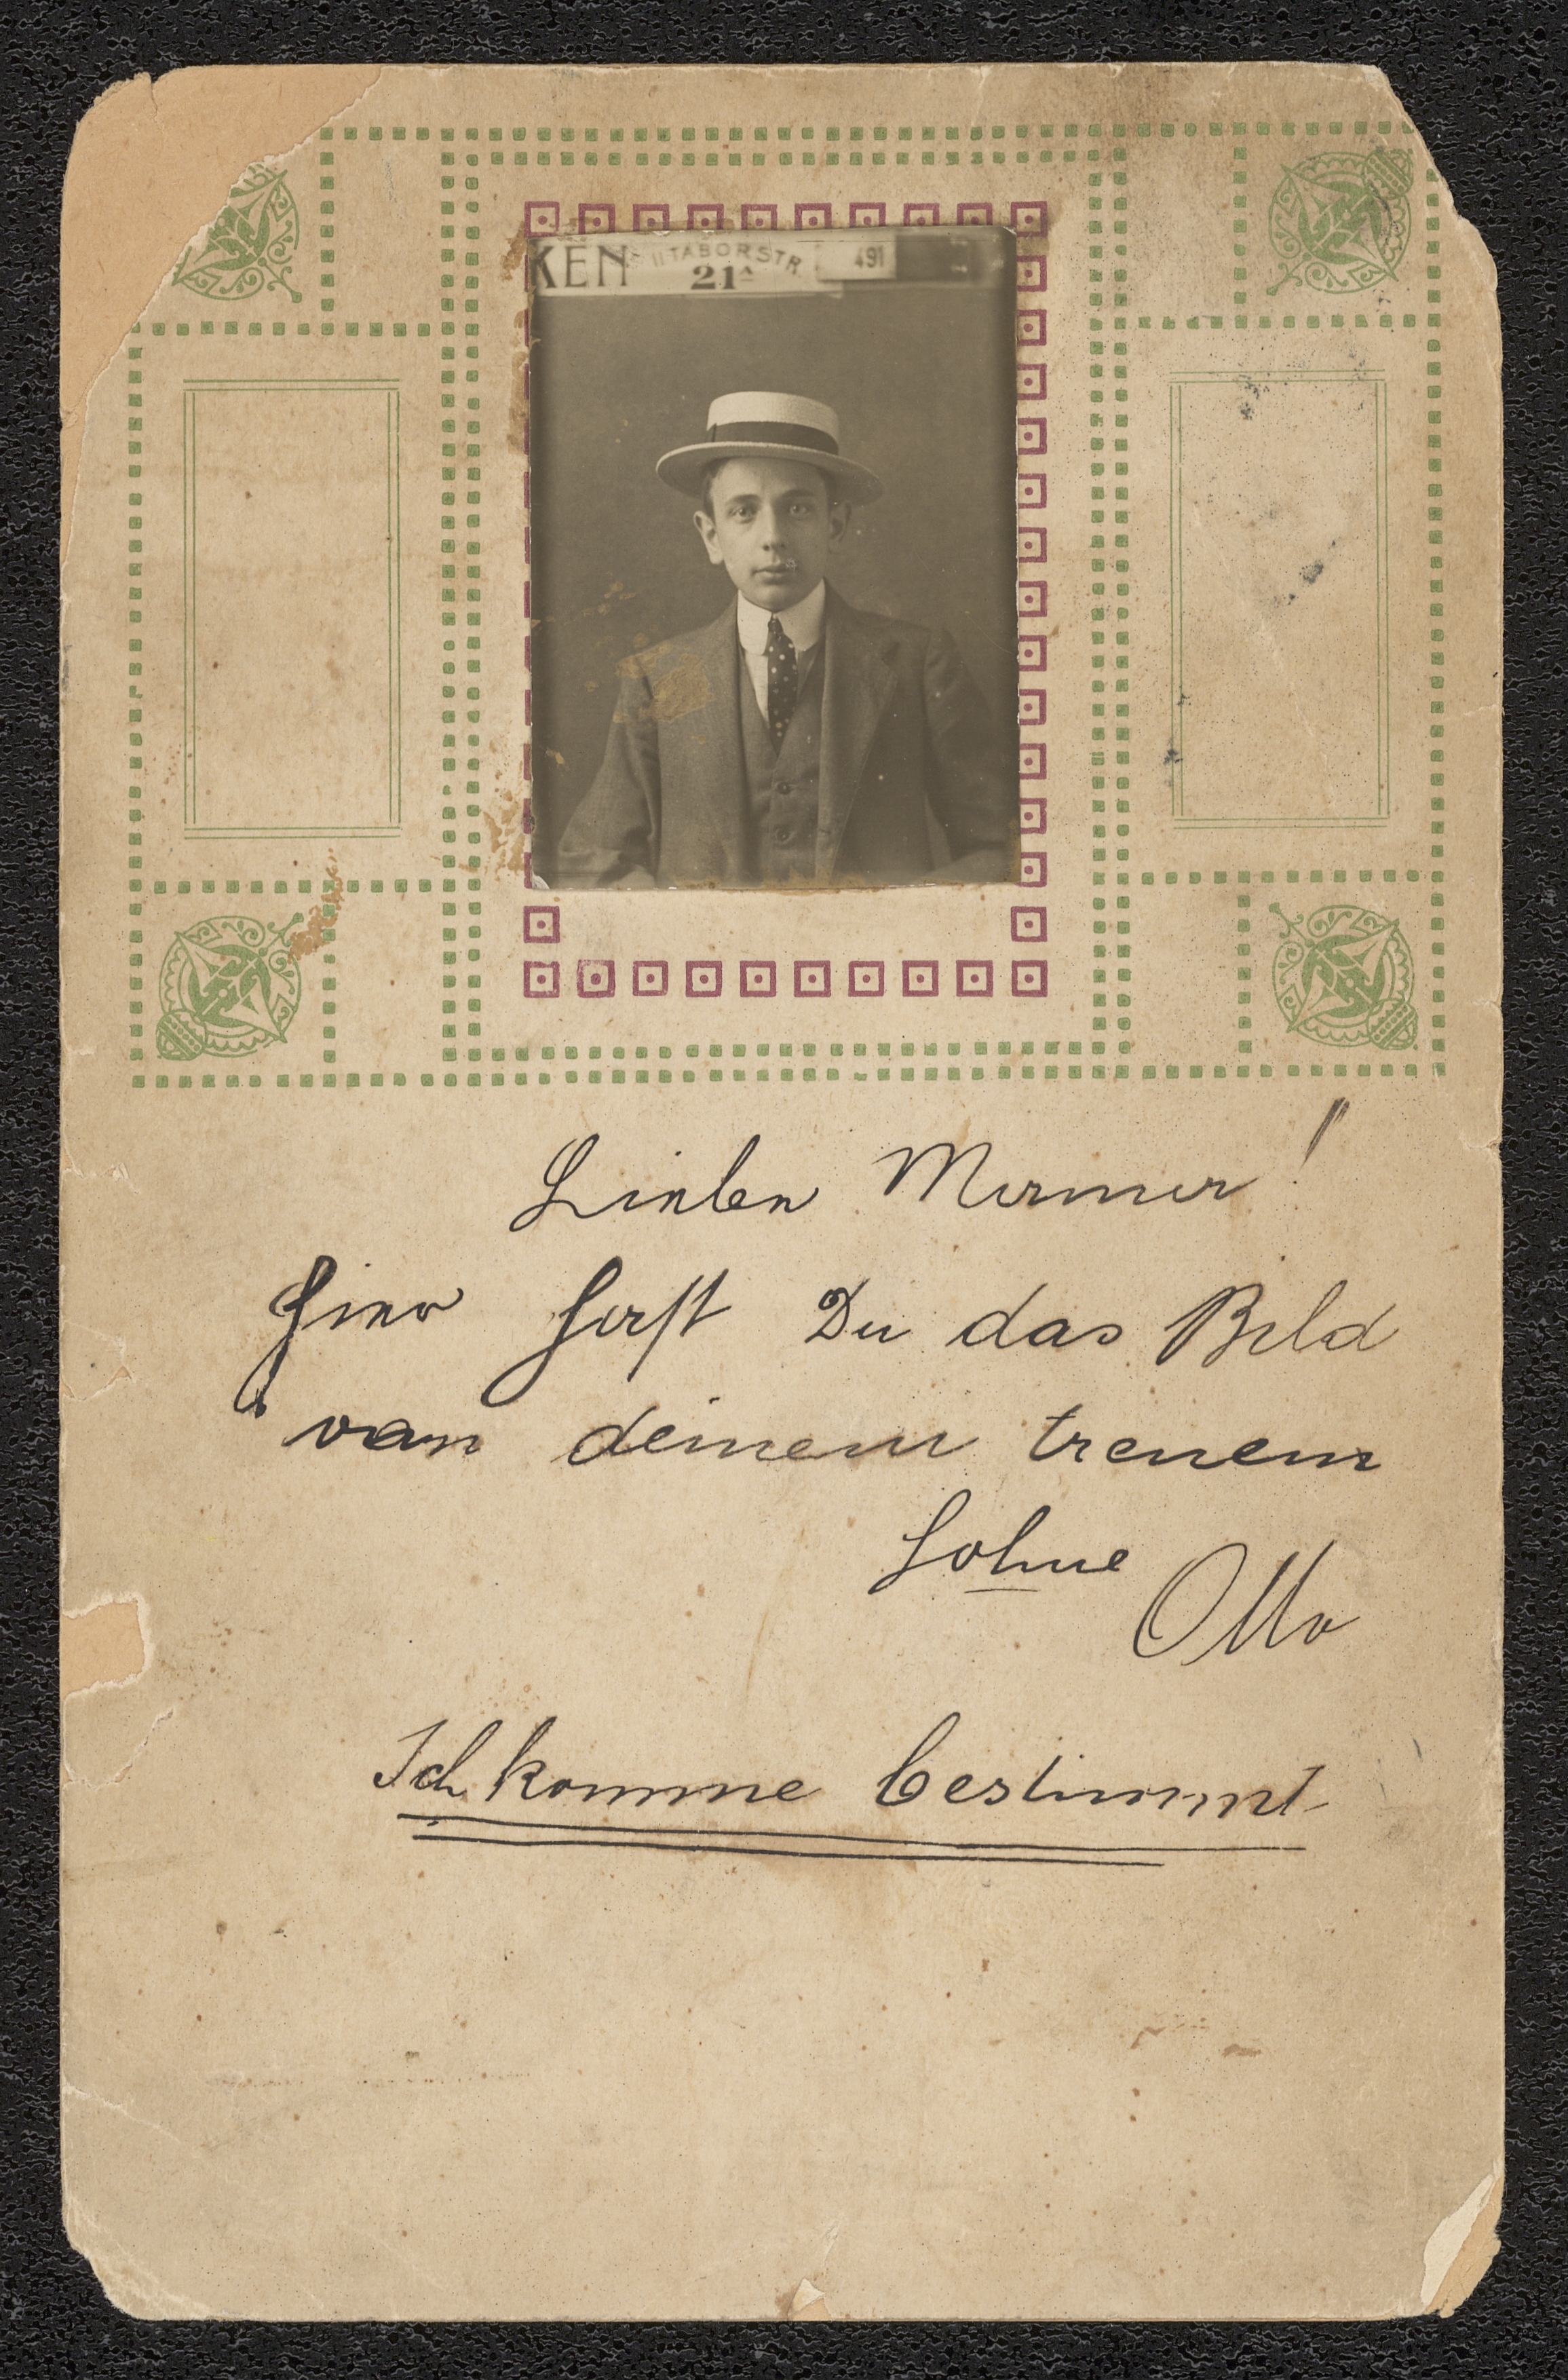 KEN II TABORSTR. 491
21A
Liebe Mama!
Hier hast Du das Bild
von deinem treuem
Sohne
Otto
Ich komme bestimmt